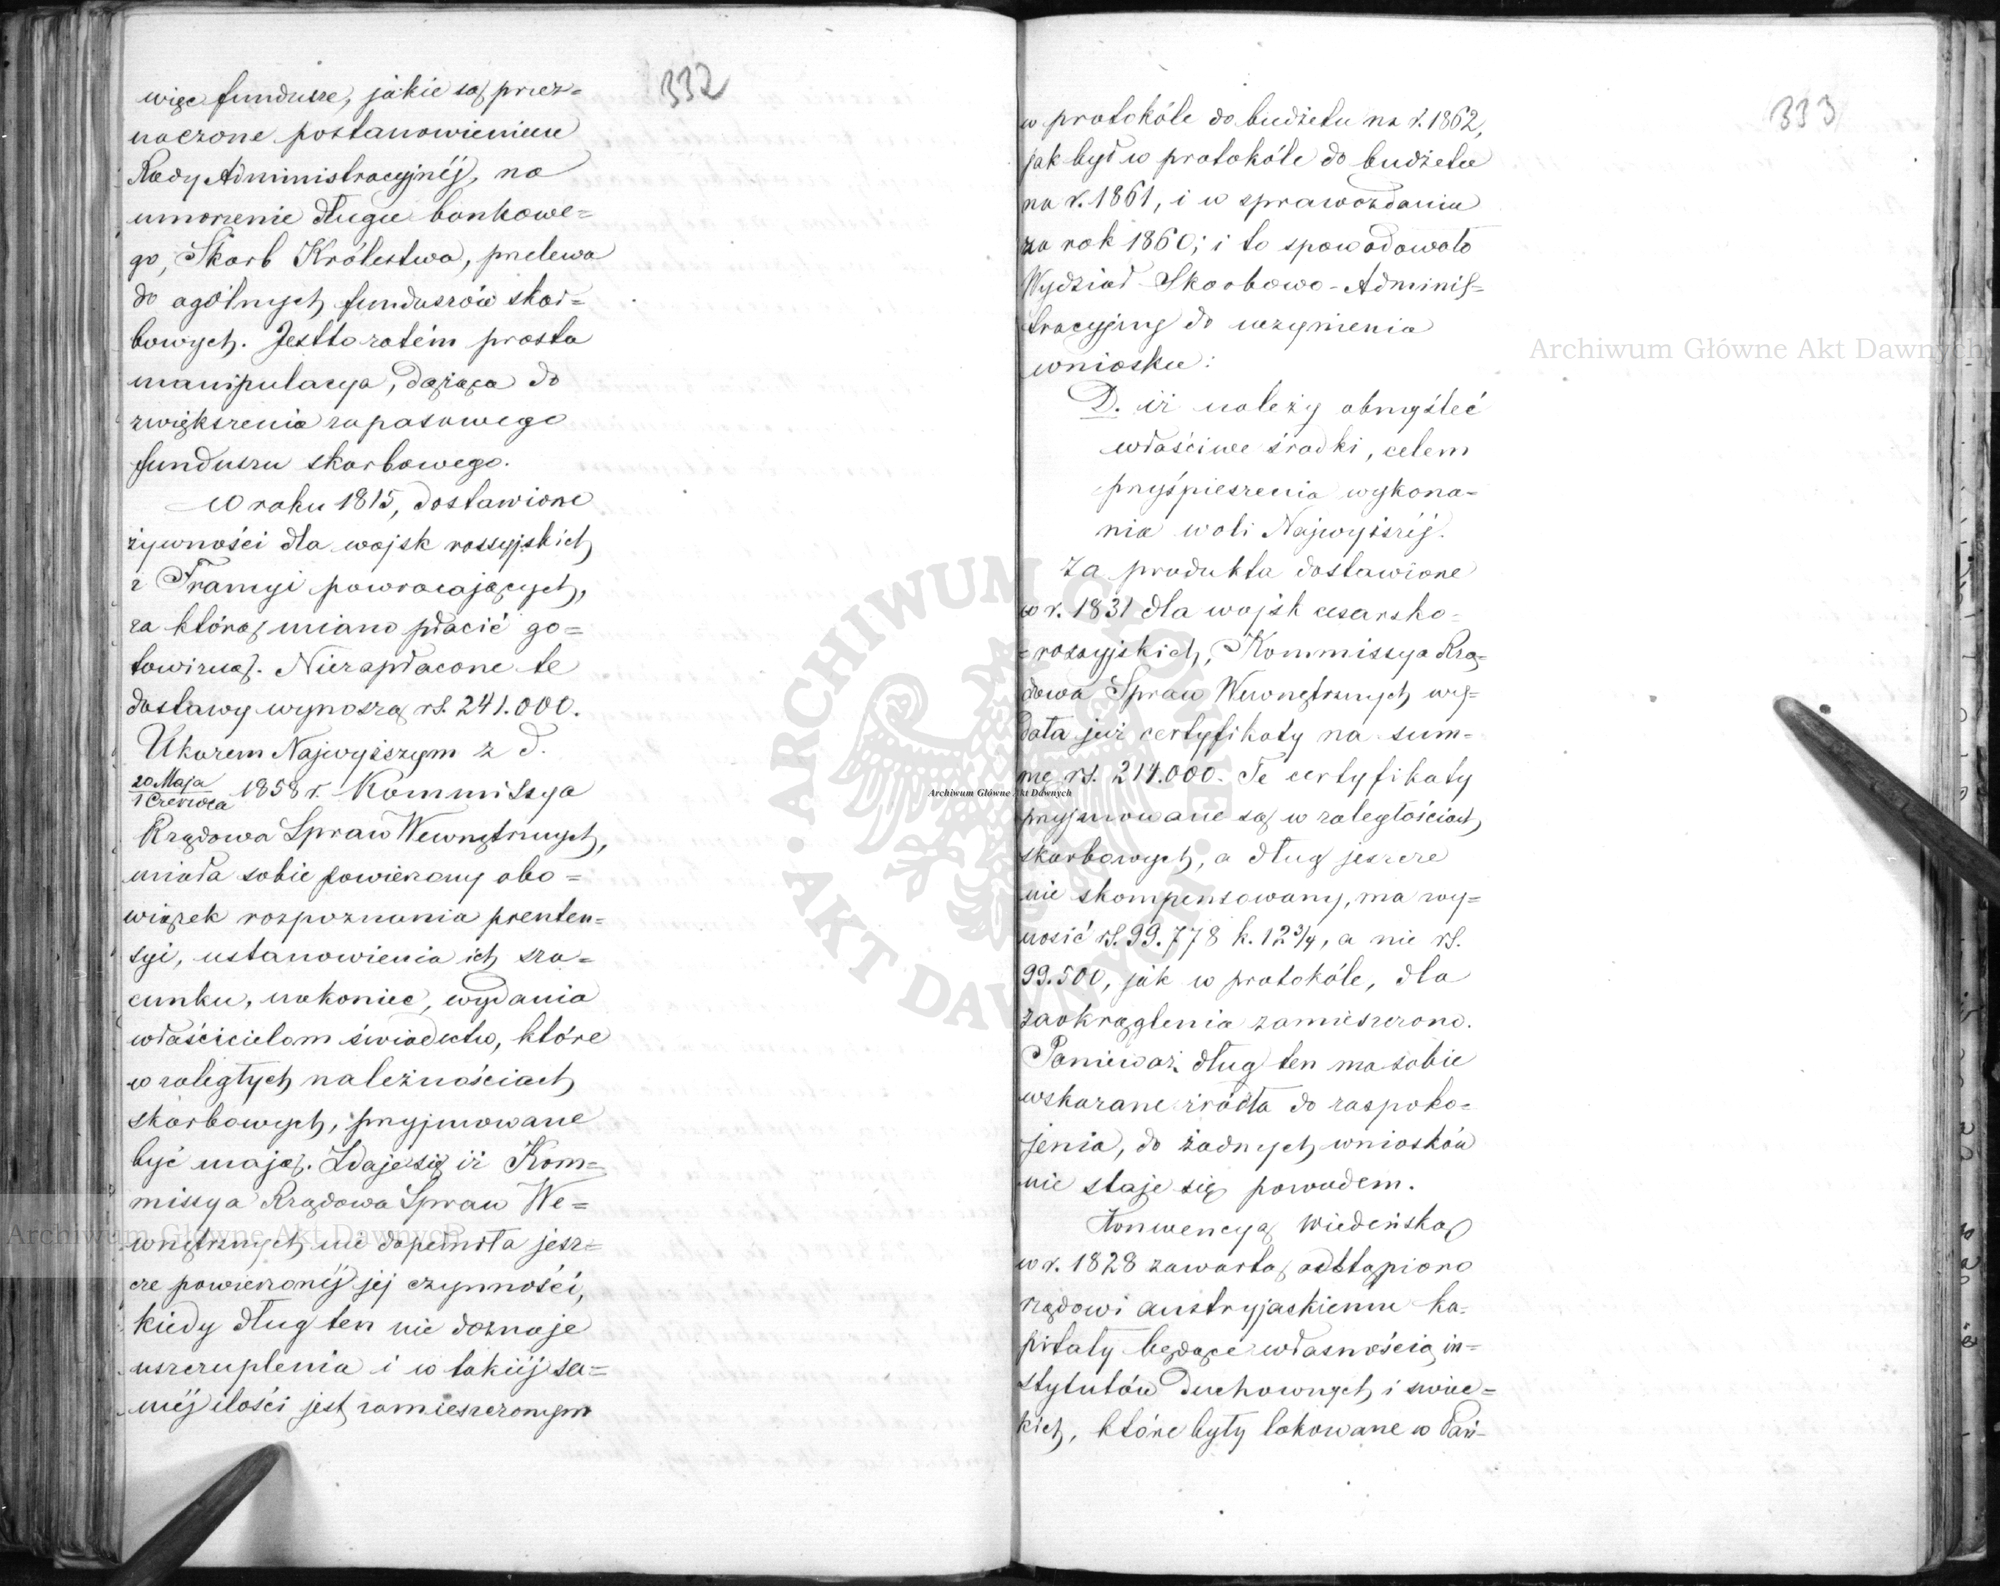 332
więc fundusze, jakie są prze-
znaczone postanowieniem
Rady Administracyjnéj, na
umorzenie długu bankowe=
go, Skarb Królestwa, przelewa
do ogólnych funduszów skar=
bowych. Jestto zatém prosta
manipulacya, dążąca do
zwiększenia zapasowego
funduszu skarbowego.
W roku 1815, dostawiono
żywności dla wojsk rossyjskich
z Francyi powracających,
za którą miano płacić go=
towizną. Niezapłacone te
dostawy wynoszą rs. 241.000.
Ukazem Najwyższym z d.
20 Maja
1 Czerwca 1858 r. Kommissya
Rządowa Spraw Wewnętrznych,
miała sobie powierzony obo=
wiązek rozpoznania preten=
syi, ustanowienia ich sza=
cunku, nakoniec, wydania
właścicielom świadectw, które
w zaległych należnościach
skarbowych, przyjmowane
być mają. Zdaje się iż Kom=
missya Rządowa Spraw We=
wnętrznych nie dopełniła jesz=
cze powierzonéj jéj czynności,
kiedy dług ten nie doznaje
uszczuplenia i w takiéj sa=
méj ilości jest zamieszczonym
333
w protokóle do budżetu na r. 1862,
jak był w protokóle do budżetu
na r. 1861, i w sprawozdaniu
za rok 1860; i to spowodowało
Wydział Skarbowo-Adminis=
tracyjny do uczynienia
wniosku:
D. iż należy obmyśleć
właściwe środki, celem
przyśpieszenia wykona=
nia woli Najwyższéj.
Za produkta dostawione
w r. 1831 dla wojsk cesarsko=
=rossyjskich, Kommissya Rzą=
dowa Spraw Wewnętrznych wy=
dała już certyfikaty na sum=
mę rs. 214.000. Te certyfikaty
przyjmowane są w zaległościach
skarbowych, a dług jeszcze
nie skompensowany, ma wy=
nosić rs. 99.778 k. 12 3/4, a nie rs.
99.500, jak w protokóle, dla
zaokrąglenia zamieszczono.
Ponieważ dług ten ma sobie
wskazane źródła do zaspoko=
jenia, do żadnych wniosków
nie staje się powodem.
Konwencyą Wiedeńską
w r. 1828 zawartą odstąpiono
rządowi austryjackiemu ka=
pitały będące własnością in=
stytutów duchownych i świec=
kich, które były lokowane w Pań=
Archiwum Główne Akt Dawnych
Archiwum Główne Akt Dawnych
Archiwum Główne Akt Dawnych
ARCHIWUM GŁÓWNE · AKT DAWNYCH ·